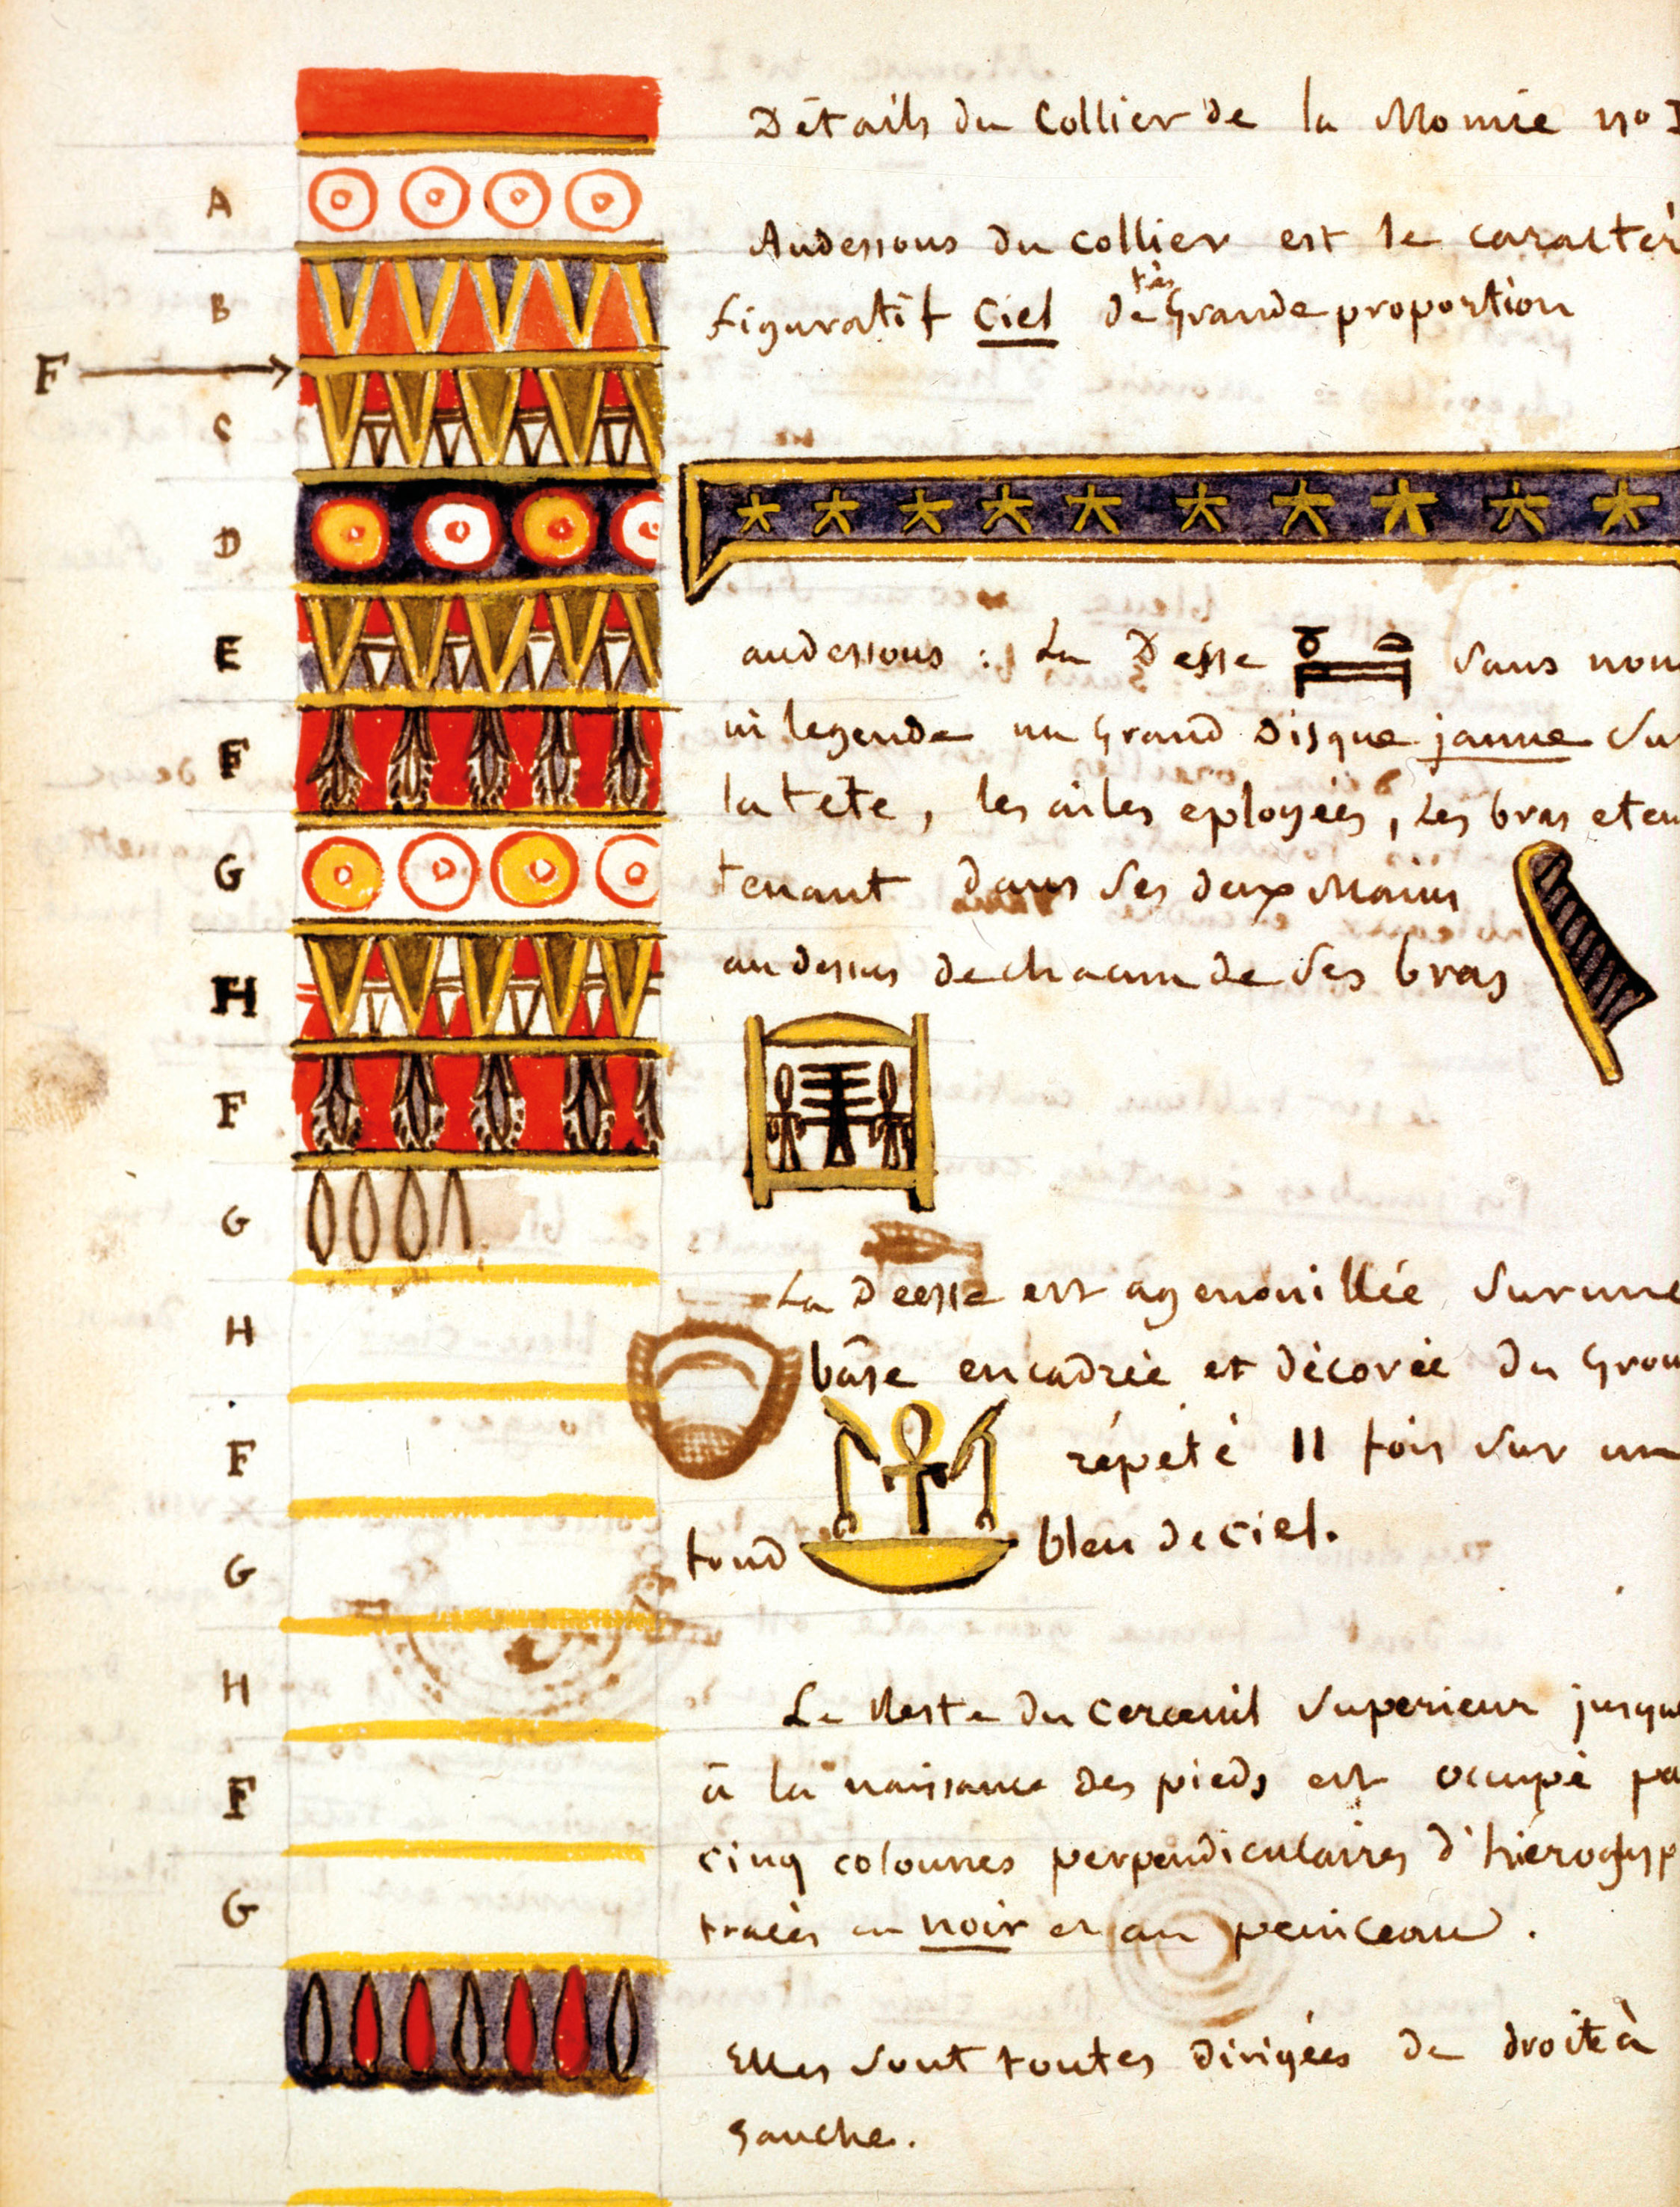 Détails du Collier de la Momie no
A
Audessous du collier est le caractèr
B
figuratif Ciel de très Grande proportion
F
C
D
audessous : La Déesse sans nom
E
ni legende un Grand Disque jaune sur
F
la tete, les ailes eployées, Les bras eten
G
tenant dans ses deux Mains
au dessus de chacun de ses bras
H
F
G
La Déesse est agenouillée sur une
H
bâse encadrée et décorée du Grou
F
répété 11 fois sur un
G
fond bleu de ciel.
H
Le Reste du cercueuil superieur jusqu
F
à la naissance des pieds est occupé pa
cinq colonnes perpendiculaires d'hierogly
G
tracés en noir et au peniceau.
Elles sont toutes dirigées de droite à
Gauche.